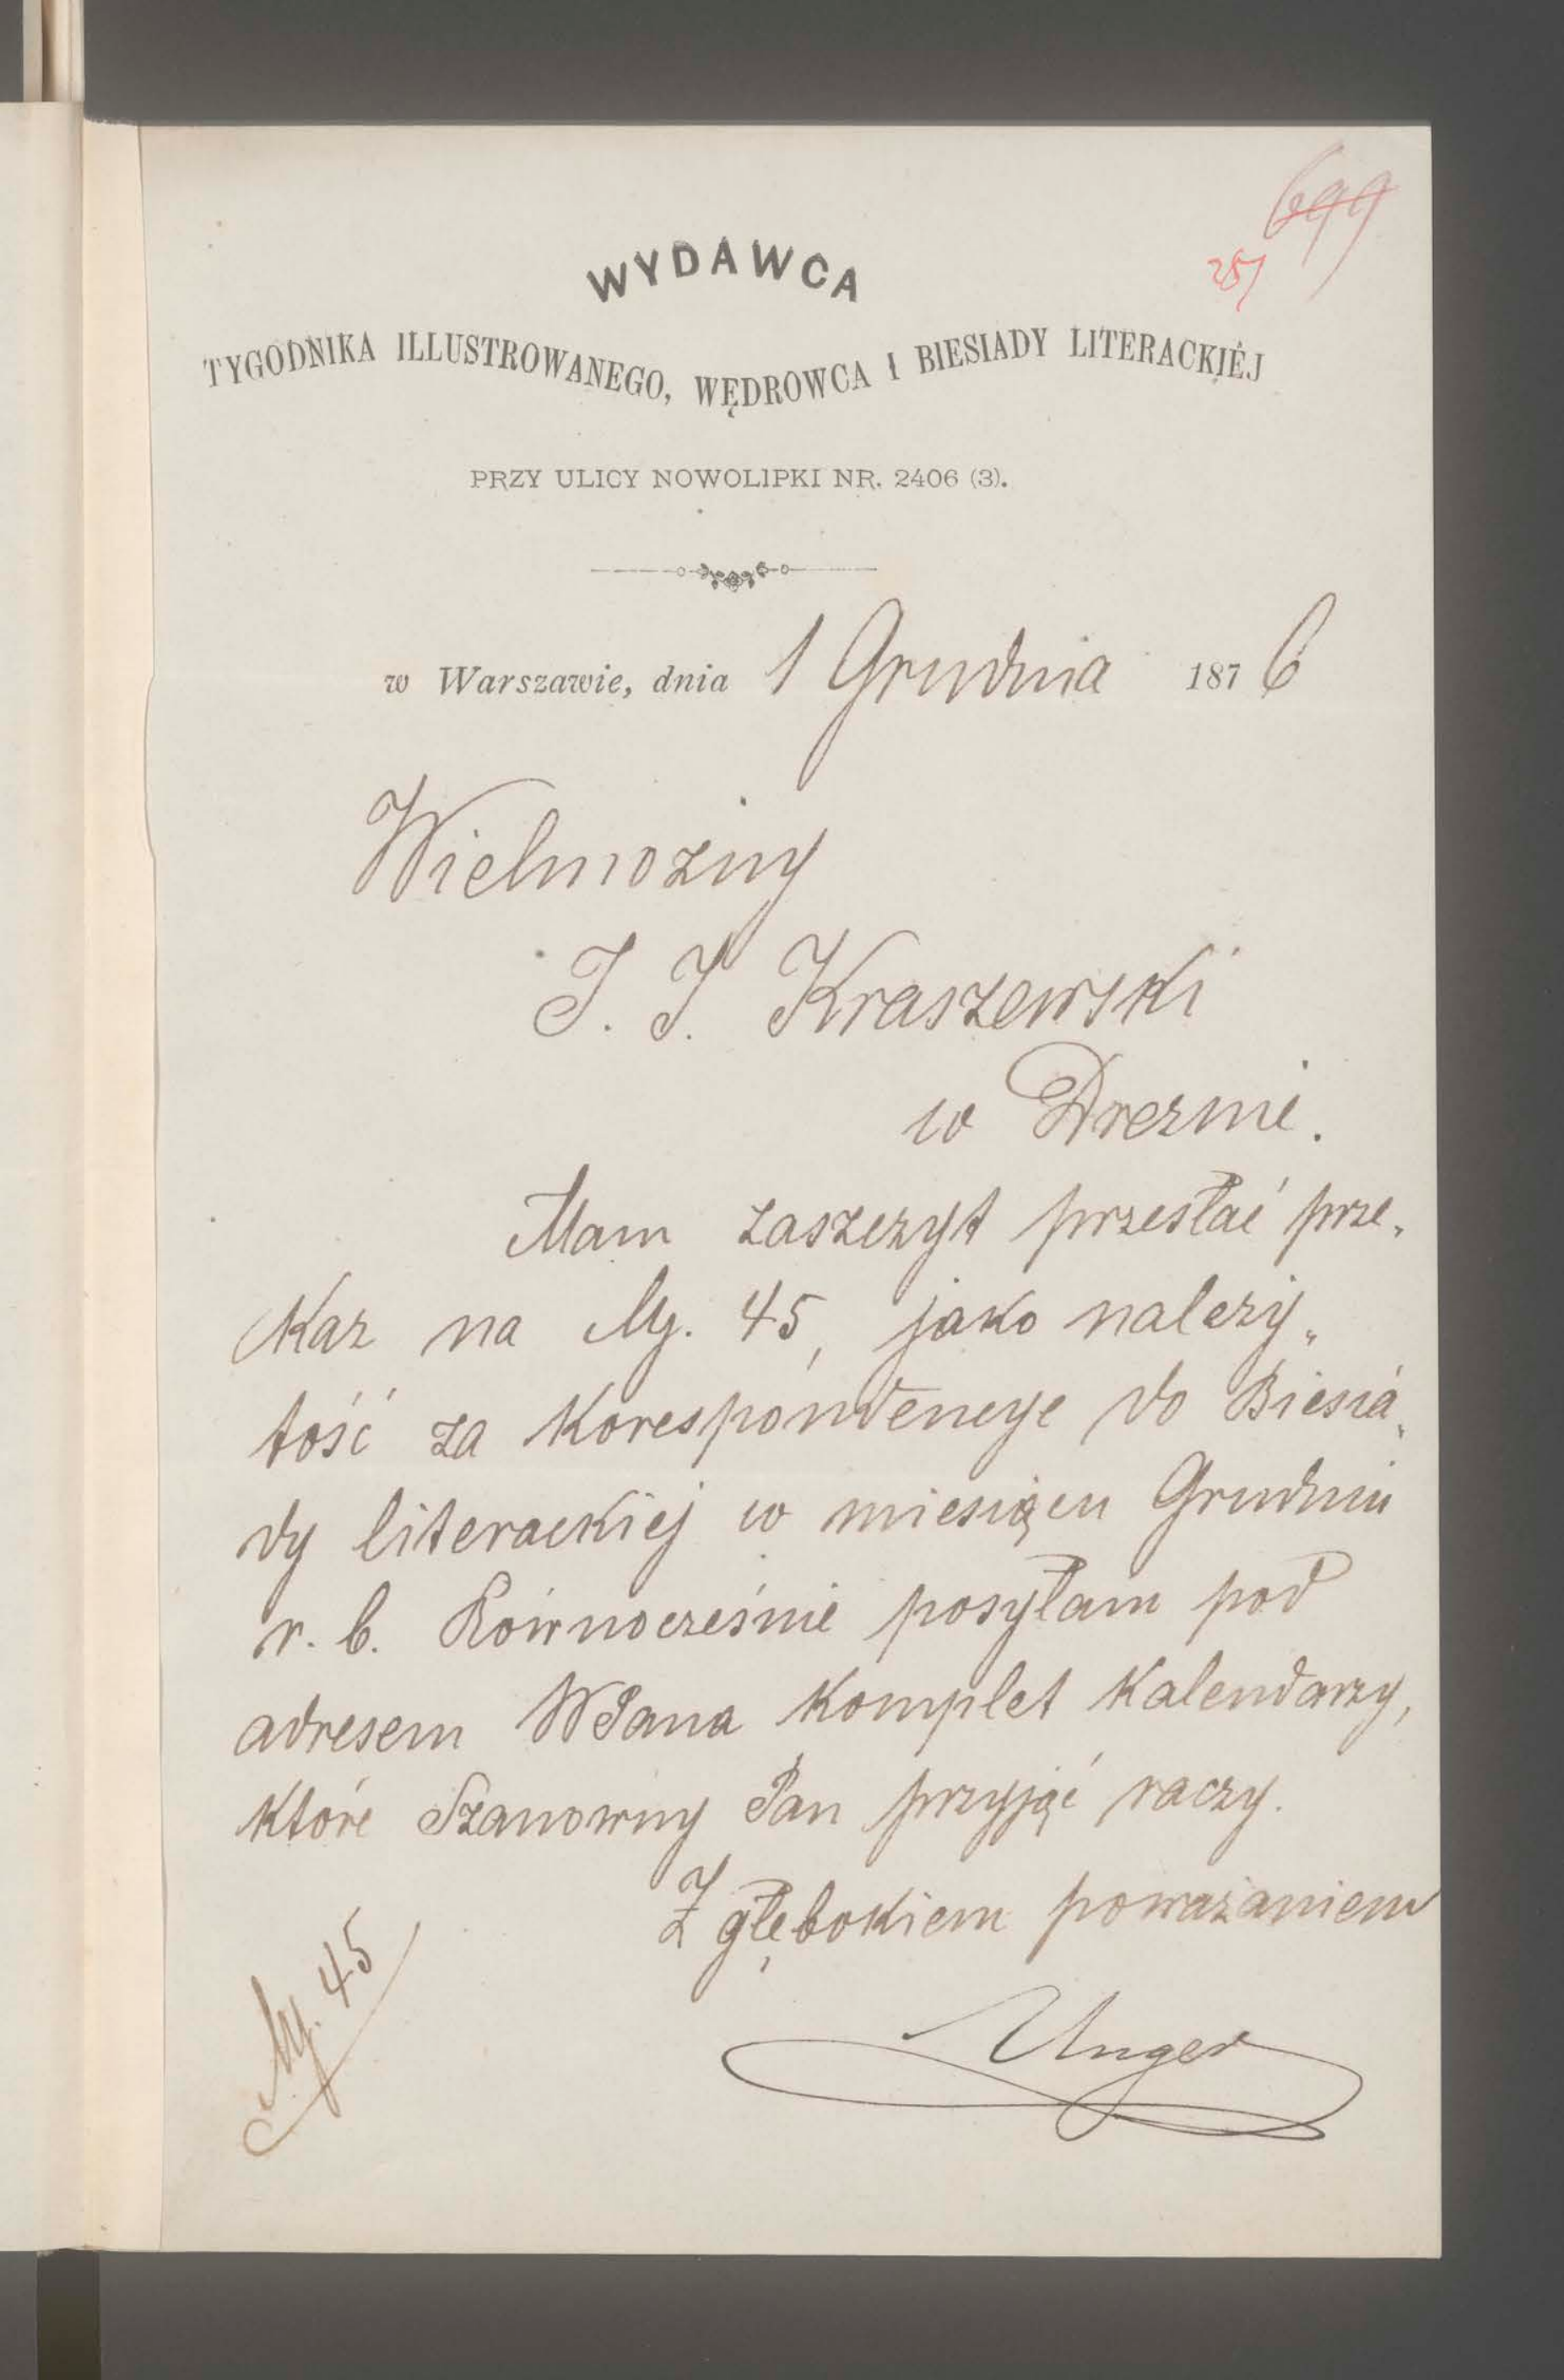 699
251
WYDAWCA
TYGODNIKA ILLUSTROWANEGO, WĘDROWCA I BIESIADY LITERACKIÉJ
PRZY ULICY NOWOLIPKI NR. 2406 (3).
w Warszawie, dnia 1 Grudnia 1876
Wielmożny
J. I. Kraszewski
w Dreznie.
Mam zaszczyt przesłać prze„
kaz na My. 45, jako należy„
tość za korespondencye do Biesia„
dy literackiej w miesiącu Grudniu
r. b. Równocześnie posyłam pod
adresem WPana komplet kalendarzy,
które Szanowny Pan przyjąć raczy.
Z głębokiem poważaniem
Unger
My. 45